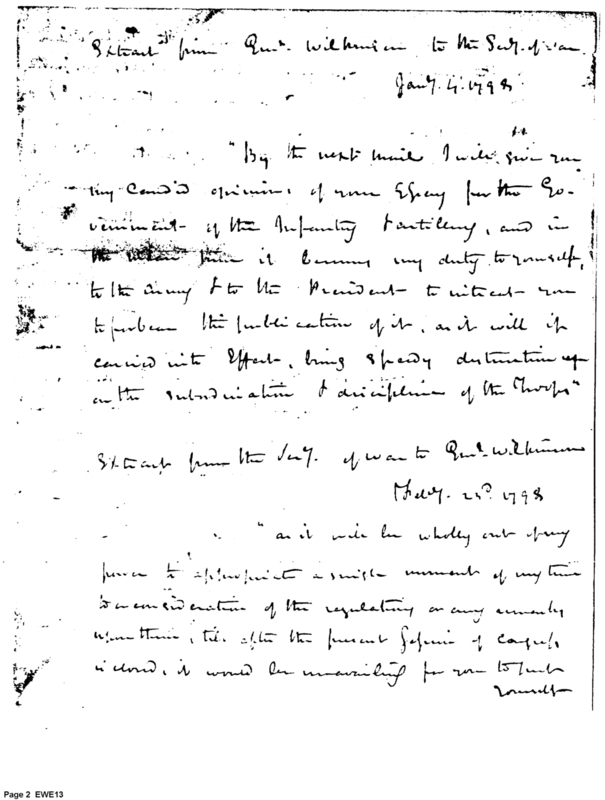 Extract from Genl. Wilkinson to the Secy. of War.
Jany. 4. 1798.
"By the next mail I will give you
my Candid opinions of your Essay for the Go-
vernment of the Infantry & artillery, and in
the mean time it becomes my duty to yourself,
to the army & to the President to intreat you
to forbear the publication of it, as it will if
carried into Effect, bring speedy destruction up
on the subordination & discipline of the Troops"
Extract from the Secy. of War to Genl. Wilkinson
Feby. 1798
"as it will be wholly out of my
power to appropriate a single moment of my time
to a consideration of the regulations or any remarks
upon them, till after the present Session of Congress
is closed, it would be unavailing for you to put
yourself
Page 2 EWE13